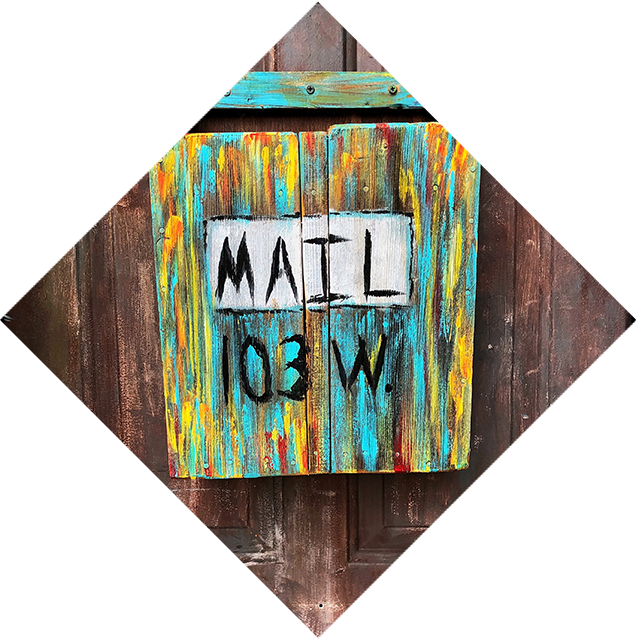 MAIL
103 W.